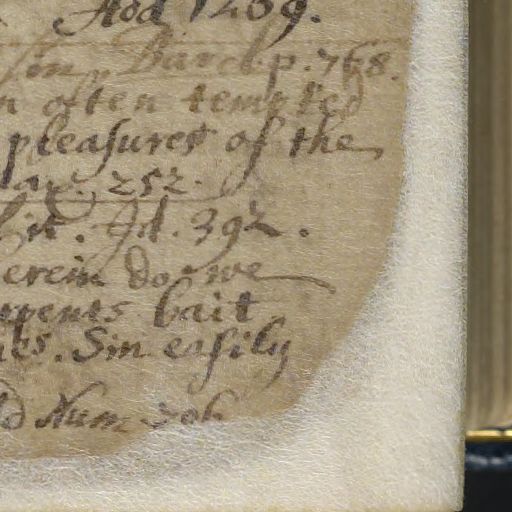 Add 1269.
sin Barclp. 768.
n often tempted
pleasures of the
252.
Jd. 392.
erein do we
rpents bait
Sin easily
Num 706